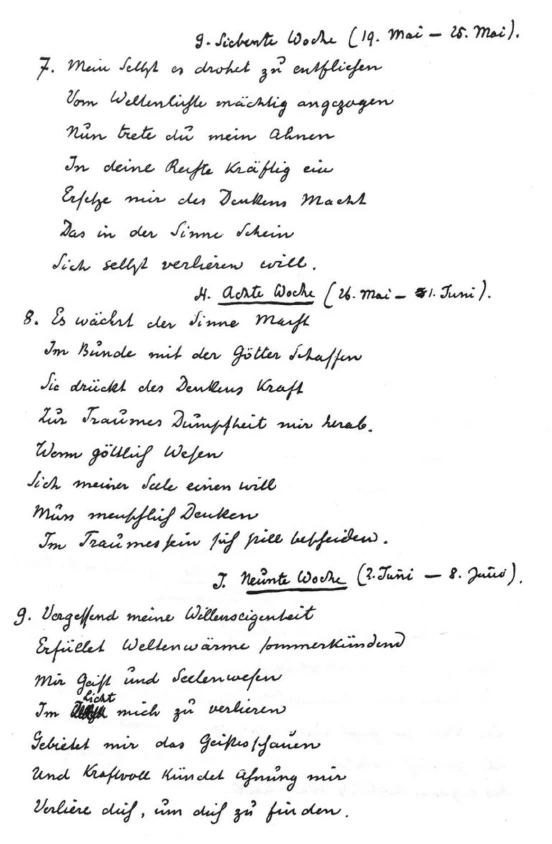 G. Siebente Woche (19. Mai – 25. Mai).
7. Mein Selbst es drohet zu entfliehen
Vom Weltenlichte mächtig angezogen
Nun trete du mein Ahnen
In deine Rechte kräftig ein
Ersetze mir des Denkens Macht
Das in der Sinne Schein
Sich selbst verlieren will.
H. Achte Woche (26. Mai – 1. Juni).
8. Es wächst der Sinne Macht
Im Bunde mit der Götter Schaffen
Sie drückt des Denkens Kraft
Zur Traumes Dumpfheit mir herab.
Wenn göttlich Wesen
Sich meiner Seele einen will
Muss menschlich Denken
Im Traumessein sich still bescheiden.
J. Neunte Woche (2. Juni – 8. Juni).
9. Vergessend meine Willenseigenheit
Erfüllet Weltenwärme sommerkündend
Mir Geist und Seelenwesen
Im Licht mich zu verlieren
Gebietet mir das Geistesschauen
Und kraftvoll kündet Ahnung mir
Verliere dich, um dich zu finden.